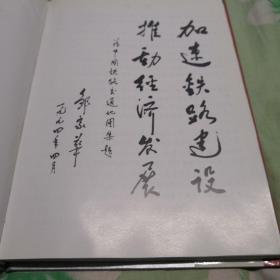 加速铁路建设
推动经济发展
为中国铁路交通地图集题
邹家华
一九九四年四月